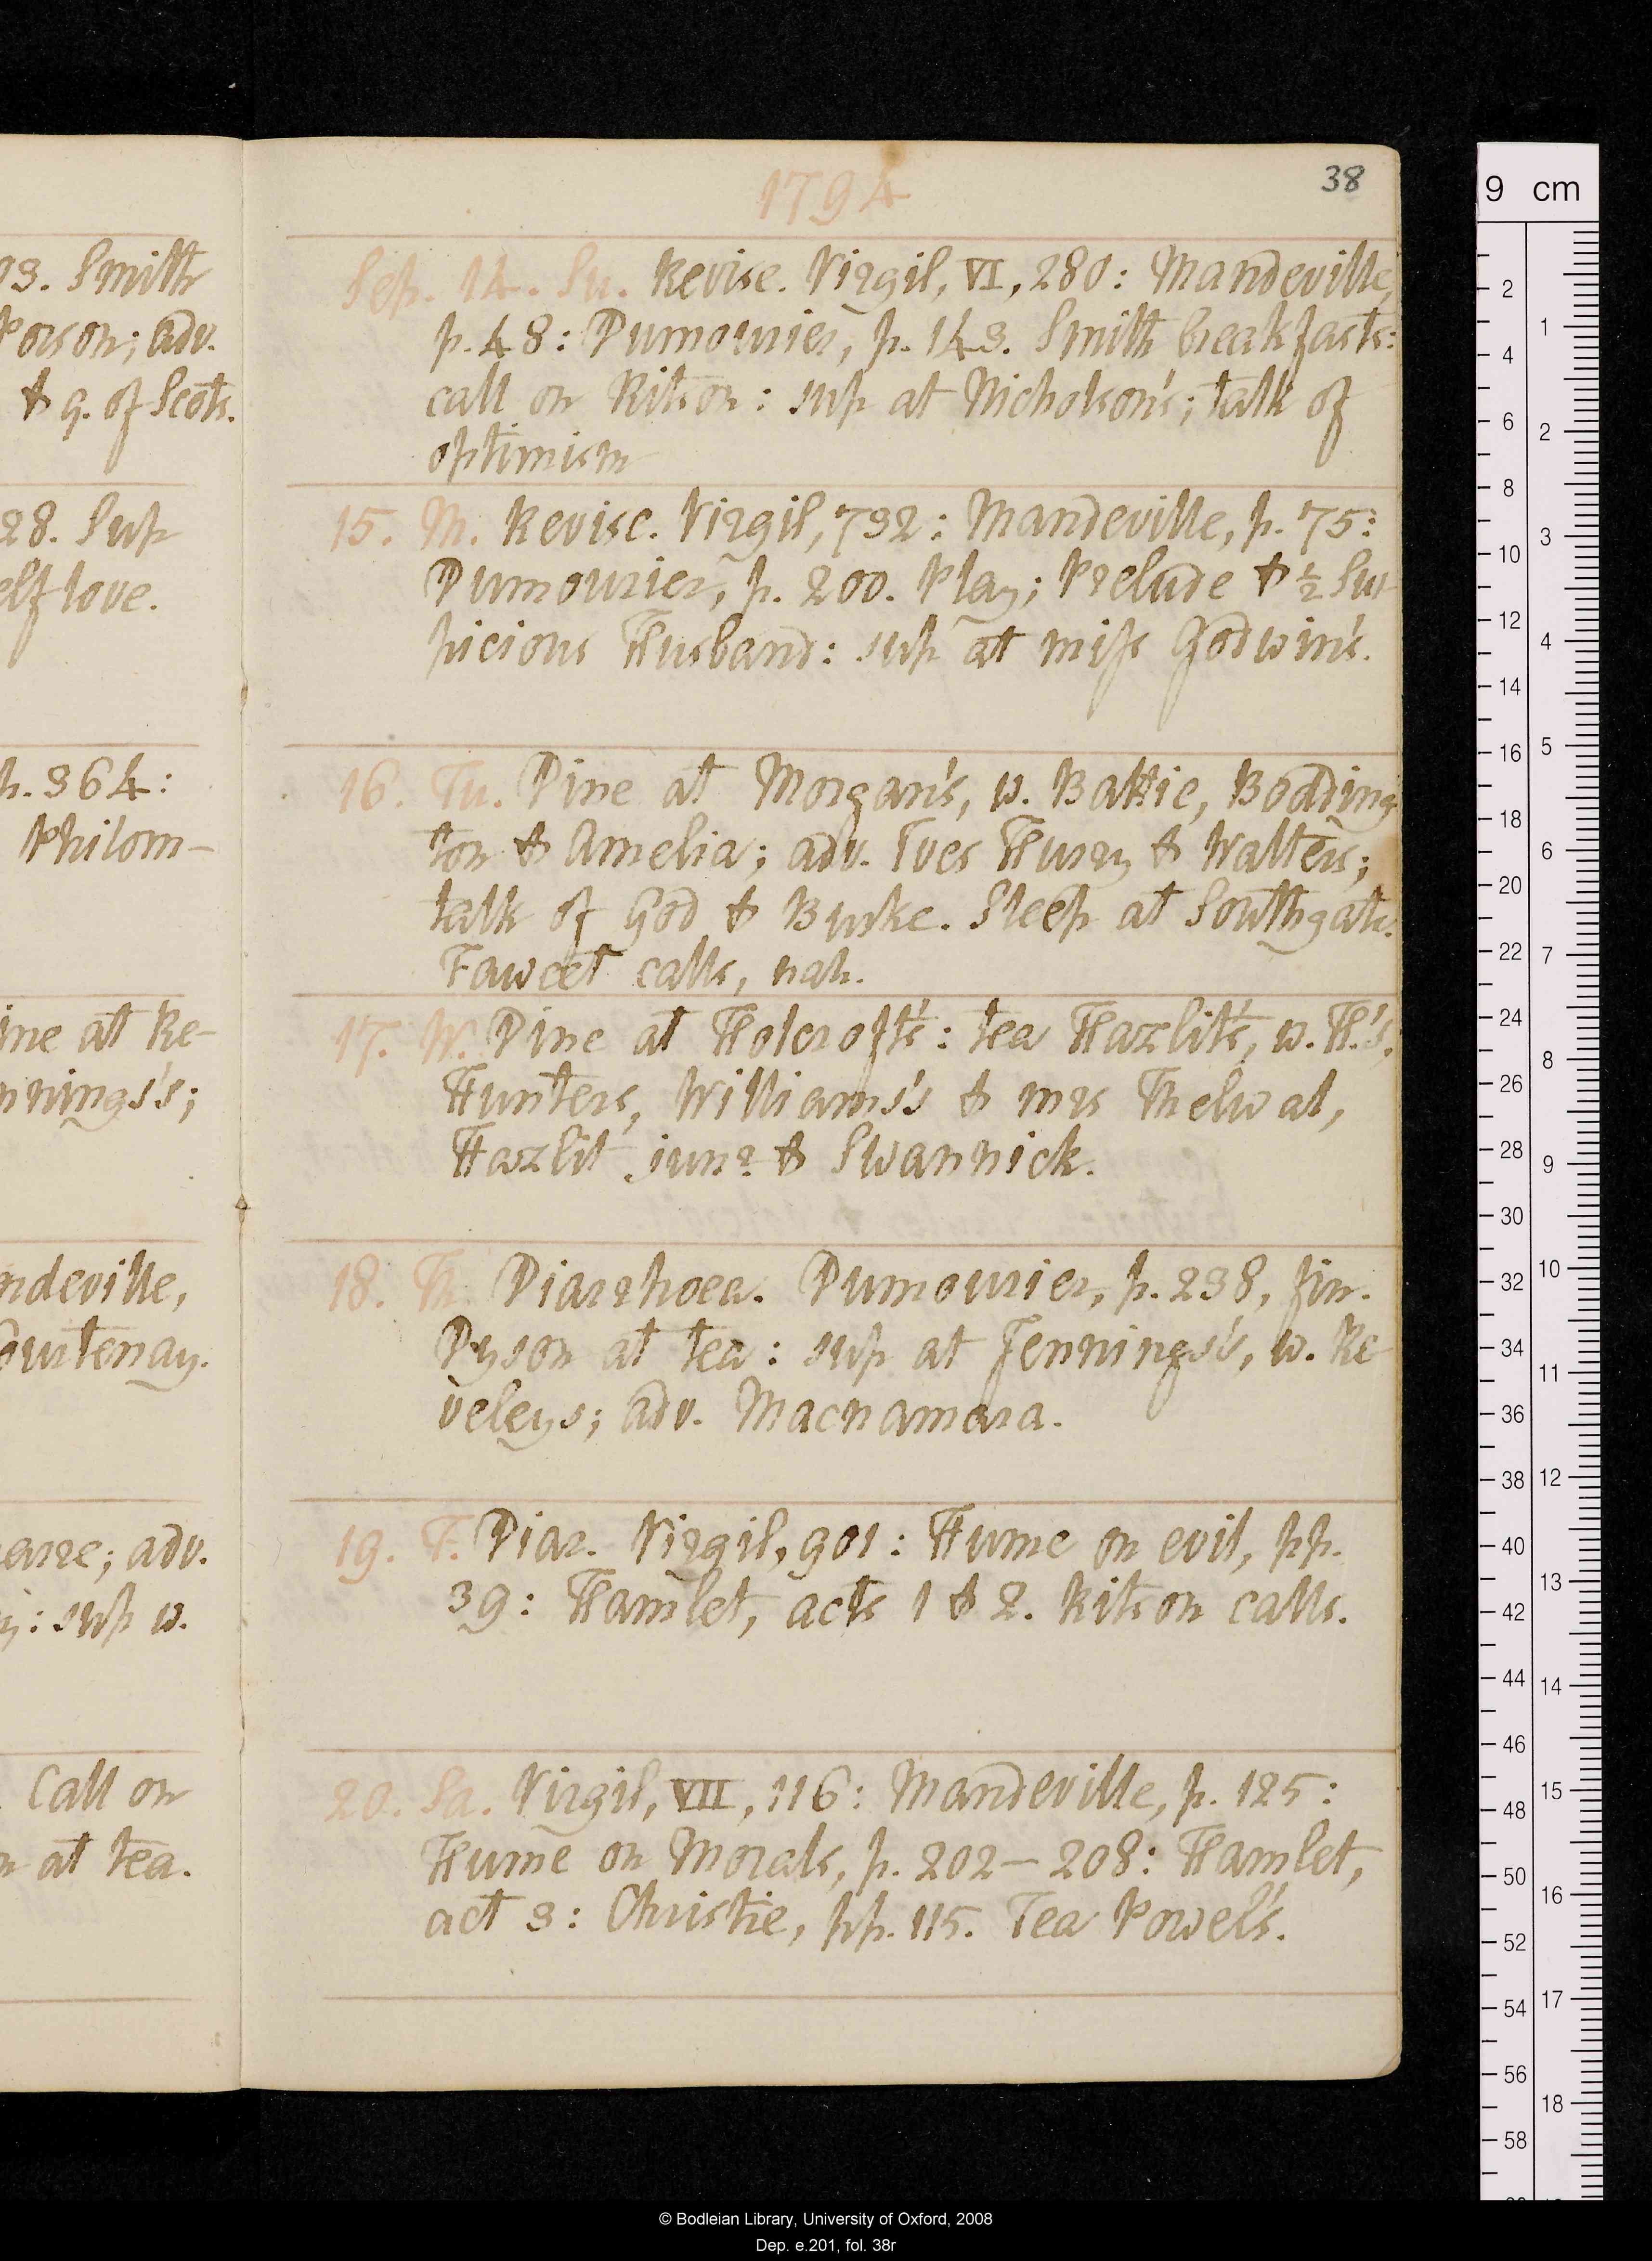 93. Smith
Porson; adv.
& q. of Scots.
28. Sup
elf love.
p. 364:
Philom-
ine at Re-
nnings's;
ndeville,
ourtenay.
arre; adv.
y: sup w.
Call on
n at tea.
1794
38
Sep. 14. Su. Revise. Virgil, VI, 280: Mandeville,
p. 48: Dumourier, p. 143. Smith breakfasts:
call on Ritson: sup at Nicholson's; talk of
optimism
15. M. Revise. Virgil, 792: Mandeville, p. 75:
Dumourier, p. 200. Play; Prelude & ½ Sus-
picious Husband: sup at miss Godwin's.
16. Tu. Dine at Morgan's, w. Battie, Bodding-
ton & Amelia; adv. Ives Hurry & Walters;
talk of God & Burke. Sleep at Southgate.
Fawcet calls, nah.
17. W. Dine at Holcroft's: tea Hazlit's, w. H.'s,
Hunters, Williams's & mrs Thelwal,
Hazlit junr & Swannick.
18. Th. Diarrhoea. Dumourier, p. 238, fin.
Dyson at tea: sup at Jennings's, w. Re-
veleys; adv. Macnamara.
19. F. Diar. Virgil, 901: Hume on evil, pp.
39: Hamlet, acts 1 & 2. Ritson calls.
20. Sa. Virgil, VII, 116: Mandeville, p. 125:
Hume on Morals, p. 202-208: Hamlet,
act 3: Christie, pp. 115. Tea Powel's.
9 cm
2
4
6
8
10
12
14
16
18
20
22
24
26
28
30
32
34
36
38
40
42
44
46
48
50
52
54
56
58
1
2
3
4
5
6
7
8
9
10
11
12
13
14
15
16
17
18
© Bodleian Library, University of Oxford, 2008
Dep. e.201, fol. 38r